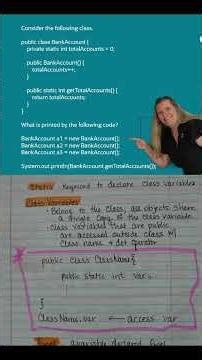 Consider the following class.
public class BankAccount {
private static int totalAccounts = 0;
public BankAccount() {
totalAccounts++;
}
public static int getTotalAccounts() {
return totalAccounts;
}
}
What is printed by the following code?
BankAccount a1 = new BankAccount();
BankAccount a2 = new BankAccount();
BankAccount a3 = new BankAccount();
System.out.println(BankAccount.getTotalAccounts());
Static Keyword to declare class variables
Class Variables
- Belong to the class, all objects share
a single copy of the class variable
- Class variables that are public
are accessed outside class w/
class name + dot operator
public class ClassName {
public static int var;
}
ClassName.var ← access var